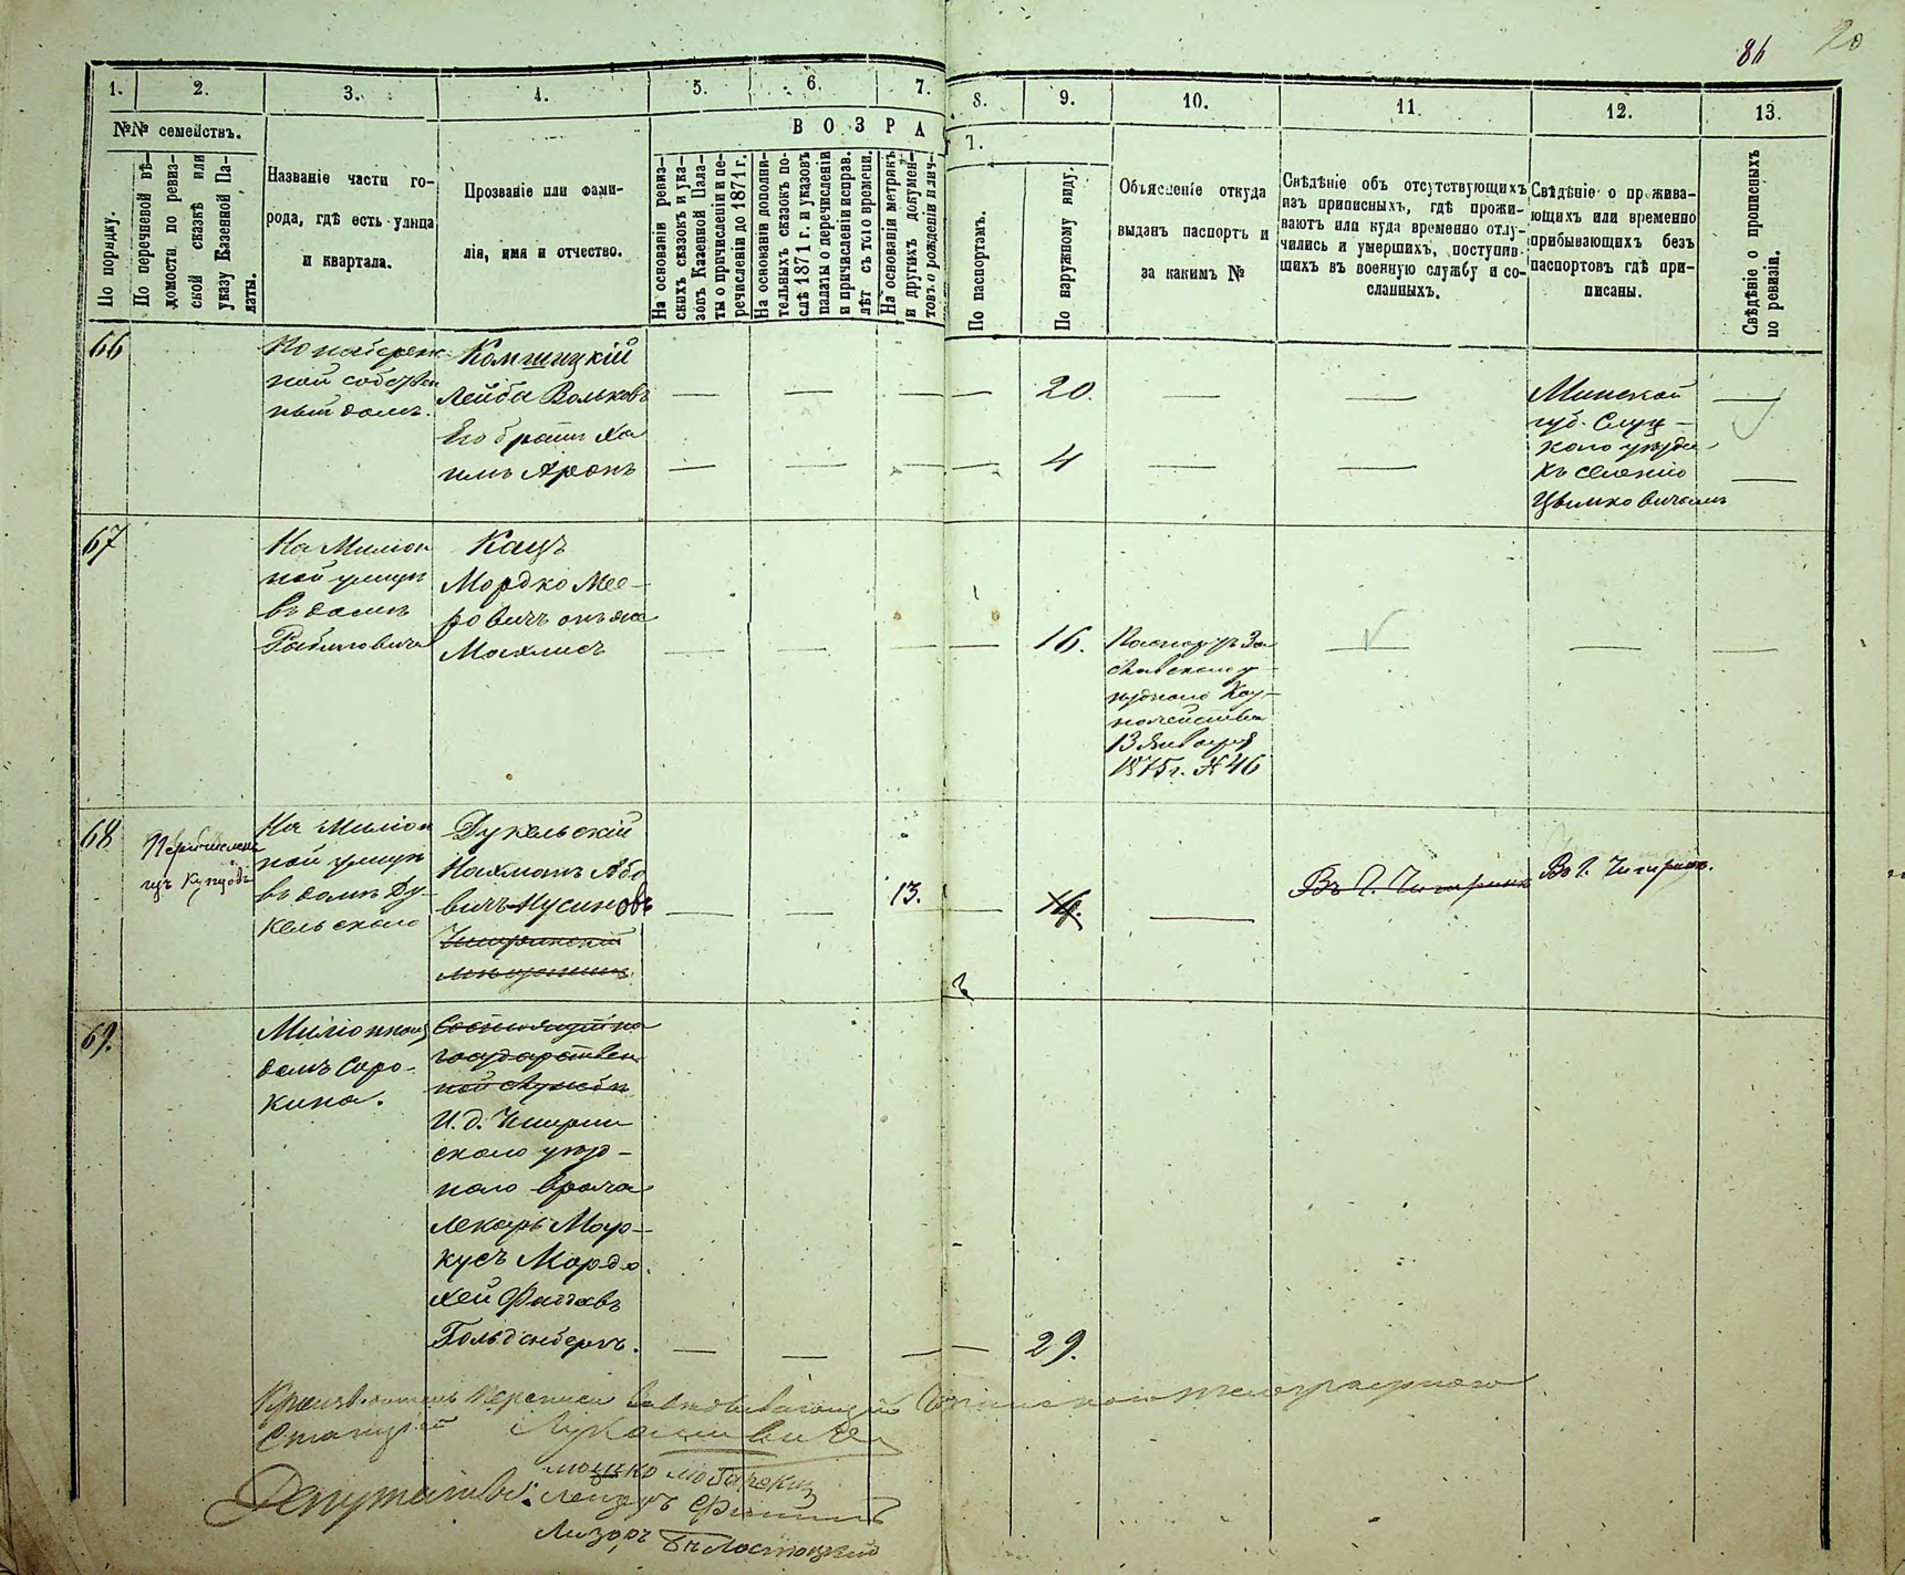 86 20
1. 2. 3. 4. 5. 6. 7. 8. 9. 10. 11. 12. 13.
№№ семействъ.
По порядку.
По перечневой вѣ-
домости по ревиз-
ской сказкѣ или
указу Казенной Па-
латы.
Названіе части го-
рода, гдѣ есть улица
и квартала.
Прозваніе или фами-
лія, имя и отчество.
В О З Р А
Т.
На основаніи ревиз-
скихъ сказокъ и ука-
зовъ Казенной Пала-
ты о причисленіи и пе-
речисленіи до 1871 г.
На основаніи дополни-
тельныхъ сказокъ по-
слѣ 1871 г. и указовъ
палаты о перечисленіи
и причисленіи исправ.
лѣт съ того времени.
На основаніи метрикъ
и другихъ докумен-
товъ о рожденіи и лич-
По паспортамъ.
По наружному виду.
Объясненіе откуда
выданъ паспортъ и
за какимъ №
Свѣдѣніе объ отсутствующихъ
изъ приписныхъ, гдѣ прожи-
ваютъ или куда временно отлу-
чились и умершихъ, поступив-
шихъ въ военную службу и со-
сланныхъ.
Свѣдѣніе о прожива-
ющихъ или временно
прибывающихъ безъ
паспортовъ гдѣ при-
писаны.
Свѣдѣніе о прописныхъ
по ревизіи.
66
По набереж
ной собствен
ный домъ.
Комшицкій
Лейба Вольковъ
20.
Его братъ Ха
имъ Аронъ
4
Минской
губ. Слуц-
кого уѣзда
къ селенію
67
На Миліон
ной улицѣ
въ домѣ
Рабиновича
Кацъ
Мордко Мее-
ровичъ онъ же
16.
Паспортъ За
славского у-
ѣздного Каз-
начейства
13 Января
1875 г. № 46
68
Перечисленъ
изъ купцовъ
На Миліон
ной улицѣ
въ домѣ Ду-
кельского
Дукельскій
Нахманъ Або
вичъ-Нусиновъ
Чигринскій
мѣщанинъ
13.
16.
Въ Г. Чигринѣ
Въ Г. Чигринѣ.
69.
Миліонная
домъ Соро-
кина.
Состоящій на
государствен
ной службѣ
И. д. Чигрин
ского уѣзд-
ного врача
лекарь Мар-
кусъ Мордо
хей
Гольденбергъ.
29.
Производитель переписи Завѣдывающій телеграфного
Станціей Лукашевичъ
Депутаты: